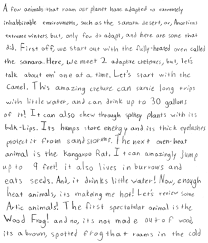 A few animals that roam our planet have adapted to extremely
inhabitable environments, such as the samara desert, or, Antarctica
extreme winters but, only few do adapt, and here are some that
did. First off, we start out with the fully-heated oven called
the samara. Here, we meet 2 adaptive critters, but, let's
talk about em' one at a time. Let's start with the
Camel. This amazing creture can samie long trips
with little water, and can drink up to 30 gallons
of it! It can also chew through spikey plants with its
bulk-Lips. Its humps store energy and its thick eyelashes
protect it from sandstorms. The next oven-heat
animal is the kangaroo Rat. It can amazingly Jump
up to 9 feet! it also lives in burrows and
eats seeds. And, it drinks little water! Now, enough
heat animals, its making me hot! Let's review some
Artic animals! The first spectatular animal is the
Wood Frog! and no, its not made out of wood,
its a brown, spotted frog that roams in the cold